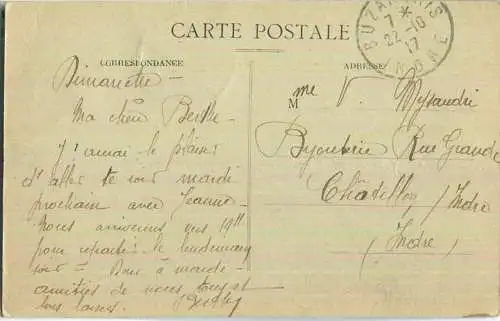 CARTE POSTALE
CORRESPONDANCE
ADRESSE
BUZANÇAIS
7 *
22-10
17
INDRE
Dimanche —
Ma chère Berthe
J'aurai le plaisir
d'aller te voir mardi
prochain avec Jeanne —
Nous arriverons vers 19h
pour repartir le lendemain
soir — Donc à mardi —
amitiés de nous tous et
bons baisers.
Mme V.
Bijouterie Rue Grande
Châtillon / Indre
(Indre)